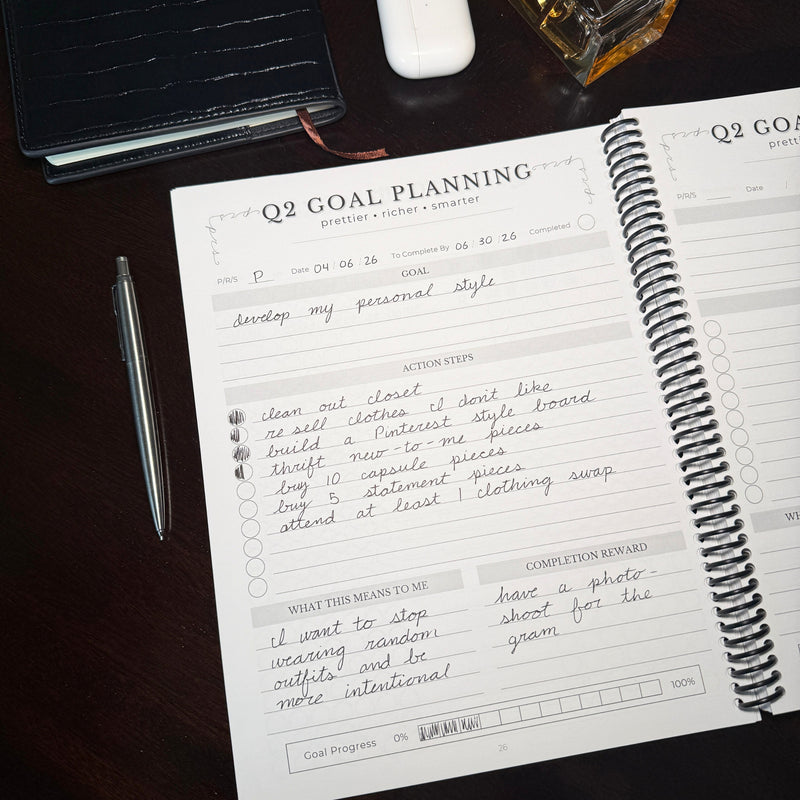 Q2 GOAL PLANNING
prettier • richer • smarter
P/R/S P Date 04 / 06 / 26 To Complete By 06 / 30 / 26 Completed
GOAL
develop my personal style
ACTION STEPS
clean out closet
re sell clothes I don't like
build a Pinterest style board
thrift new-to-me pieces
buy 10 capsule pieces
buy 5 statement pieces
attend at least 1 clothing swap
WHAT THIS MEANS TO ME
I want to stop
wearing random
outfits and be
more intentional
COMPLETION REWARD
have a photo-
shoot for the
gram
Goal Progress 0% 100%
26
Q2 GOA
prett
P/R/S Date /
WH